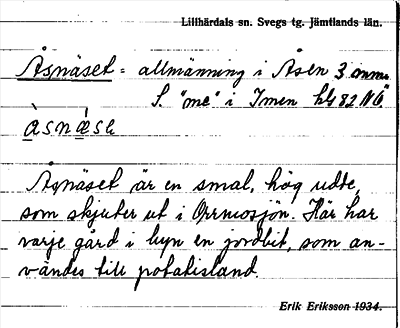 Lillhärdals sn. Svegs tg. Jämtlands län.
Åsnäset = allmänning i Åsen 3 mm
S. "me" i Imen
àsnǽse
Åsnäset är en smal, hög udde,
som skjuter ut i Orrmosjön. Här har
varje gård i byn en jordbit, som an-
vändes till potatisland.
Erik Eriksson 1934.